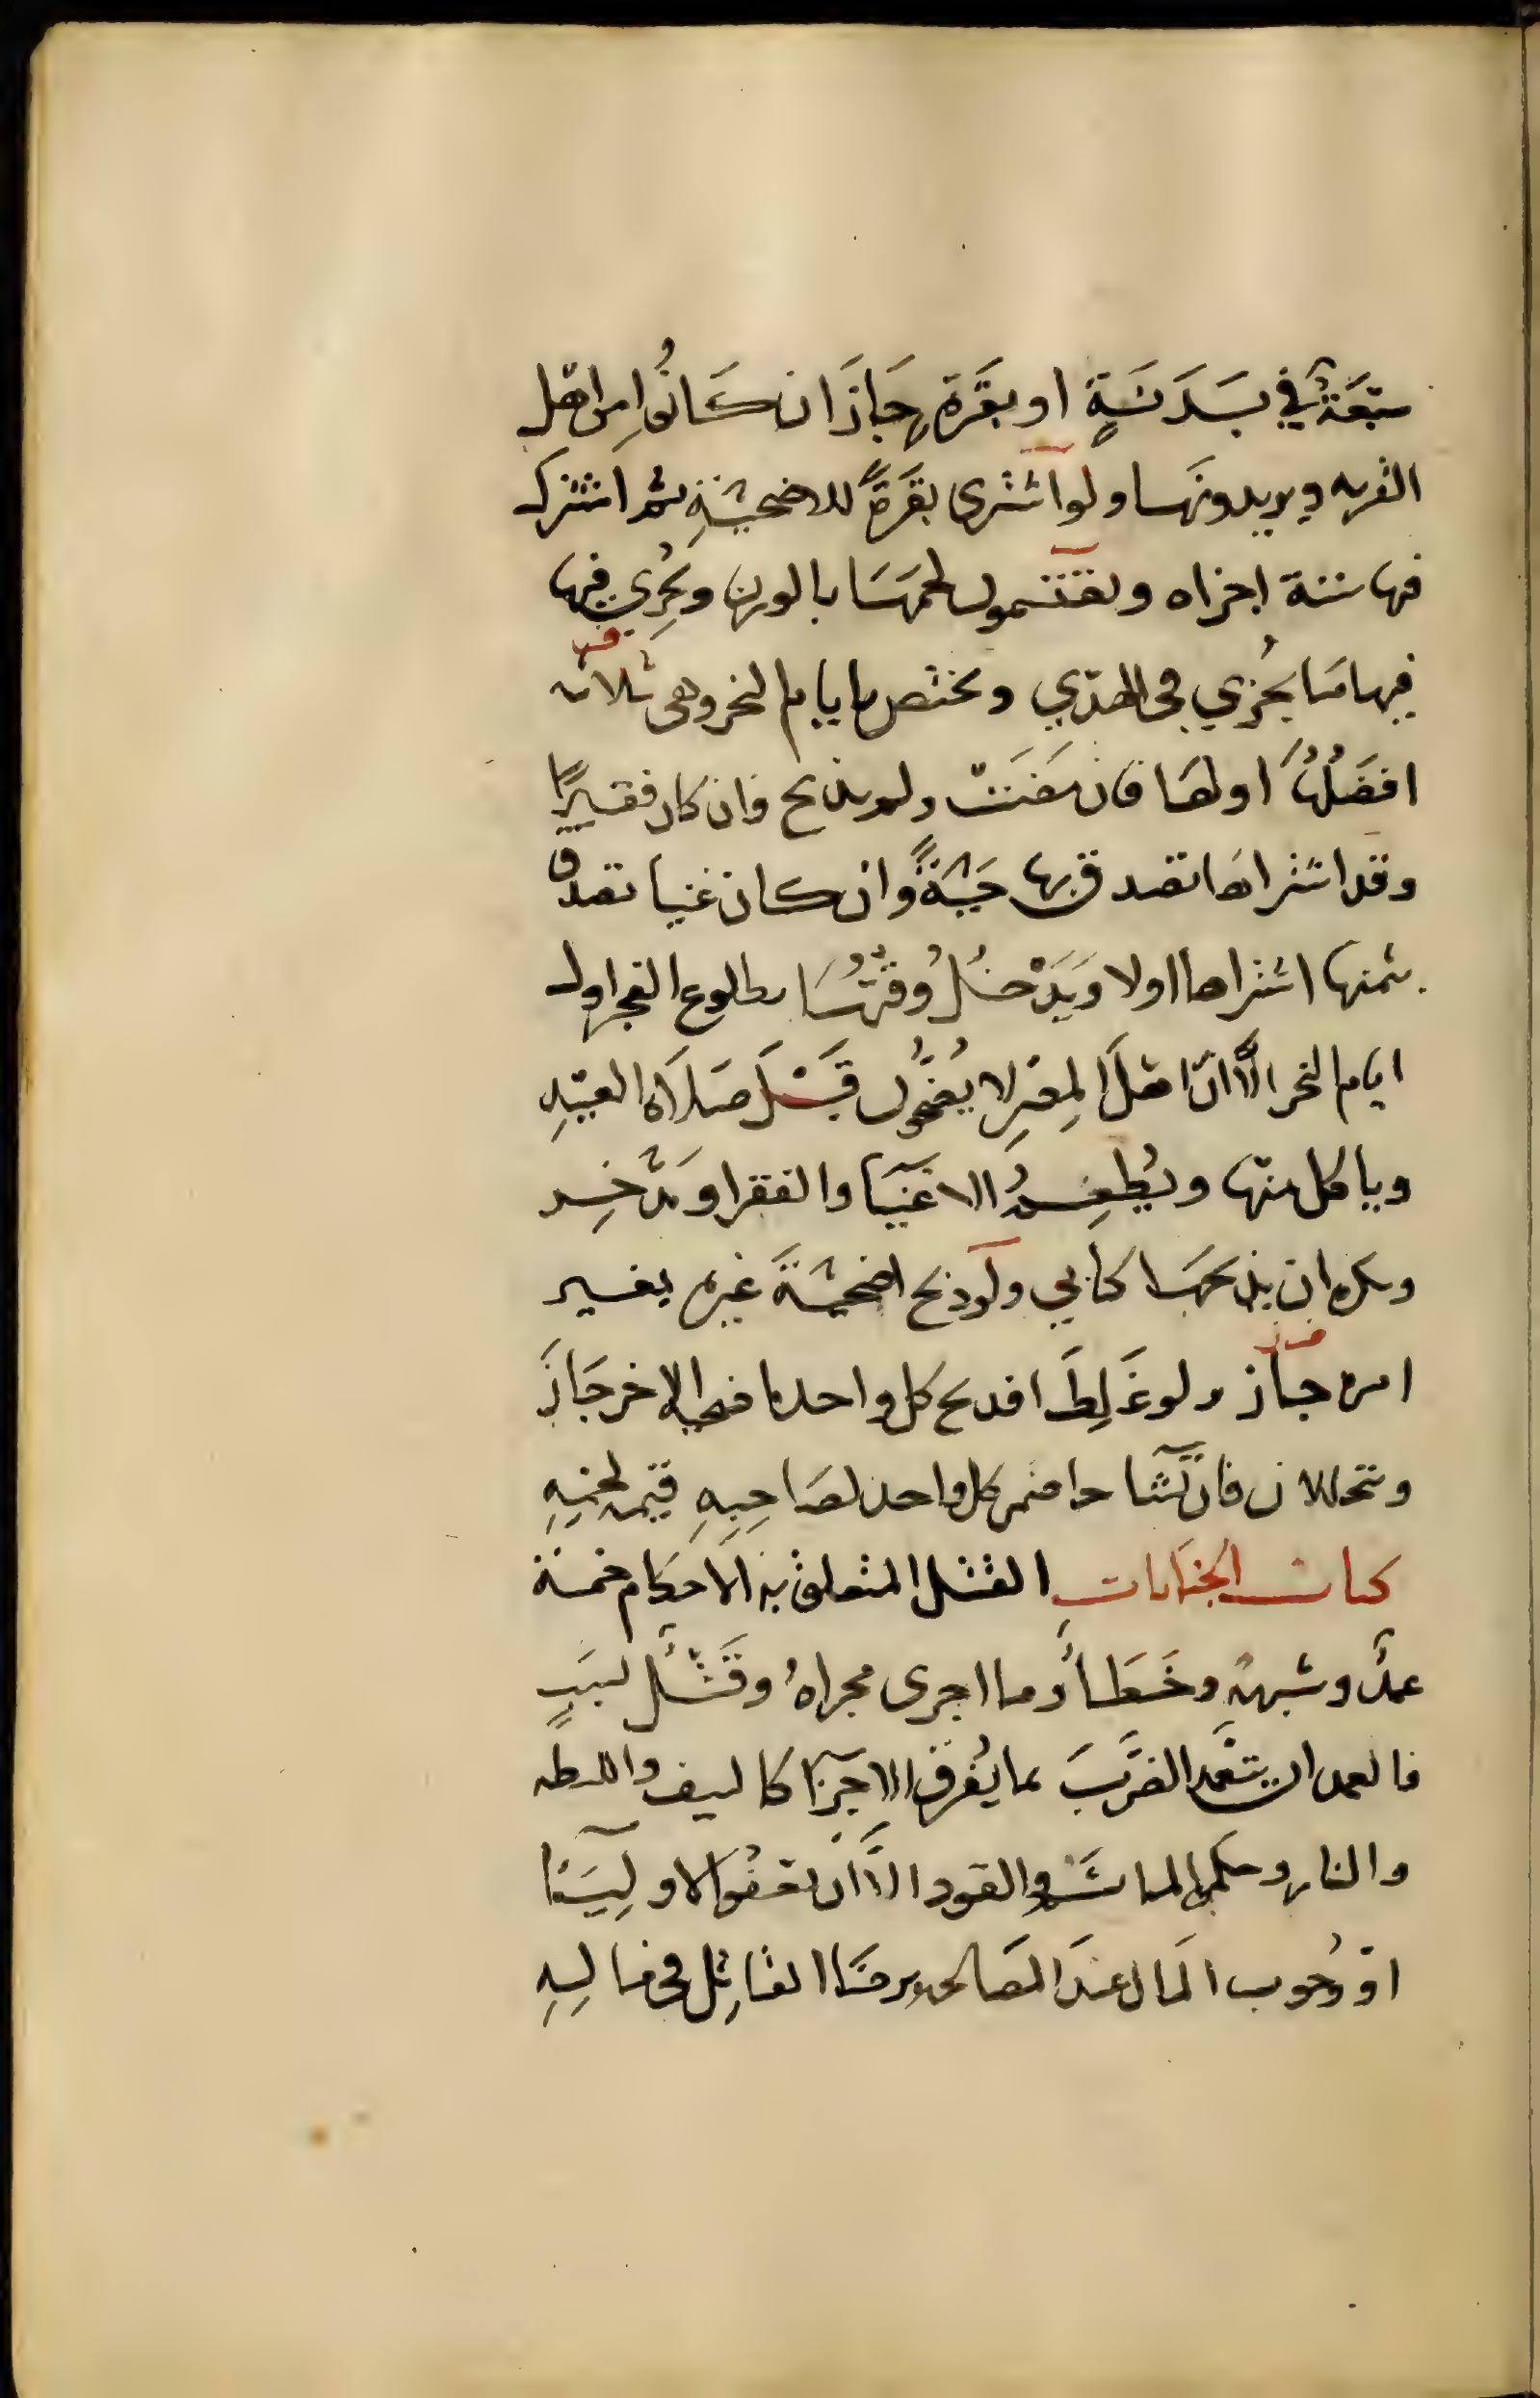 سبعة في بدنة او بقرة جاز ان كانوا من اهل
القربه ويريدونها ولو اشترى بقرة للاضحية ثم اشترك
فيها ستة اجزاه ويقتسمون لحمها بالوزن ويجزي فيها
فيها ما يجزي في الهدي ويختص بايام النحر وهي ثلاثه
افضلها اولها فان مضت ولم يذبح فان كان فقيرا
وقد اشتراها تصدق بها حية وان كان غنيا تصدق
بثمنها اشتراها اولا ويدخل وقتها بطلوع الفجر اول
ايام النحر الا ان اهل المصر لا يضحون قبل صلاة العيد
وياكل منها ويطعم الاغنيا والفقرا ويدخر
ويكره ان يذبحها كتابي ولو ذبح اضحية غيره بغير
امره جاز ولو غلطا فذبح كل واحد اضحية الاخر جاز
ويتحالان فان تشاحا ضمن كل واحد لصاحبه قيمة لحمه
كتاب الجنايات القتل المتعلق به الاحكام خمسة
عمد وشبهه وخطأ وما اجرى مجراه وقتل لسبب
فالعمد ان يتعمد الضرب بما يفرق الاجزا كالسيف والليطه
والنار وحكمه الماثم والقود الا ان يعفوا الاوليا
او وجوب المال عند المصالحه برضا القاتل في ماله